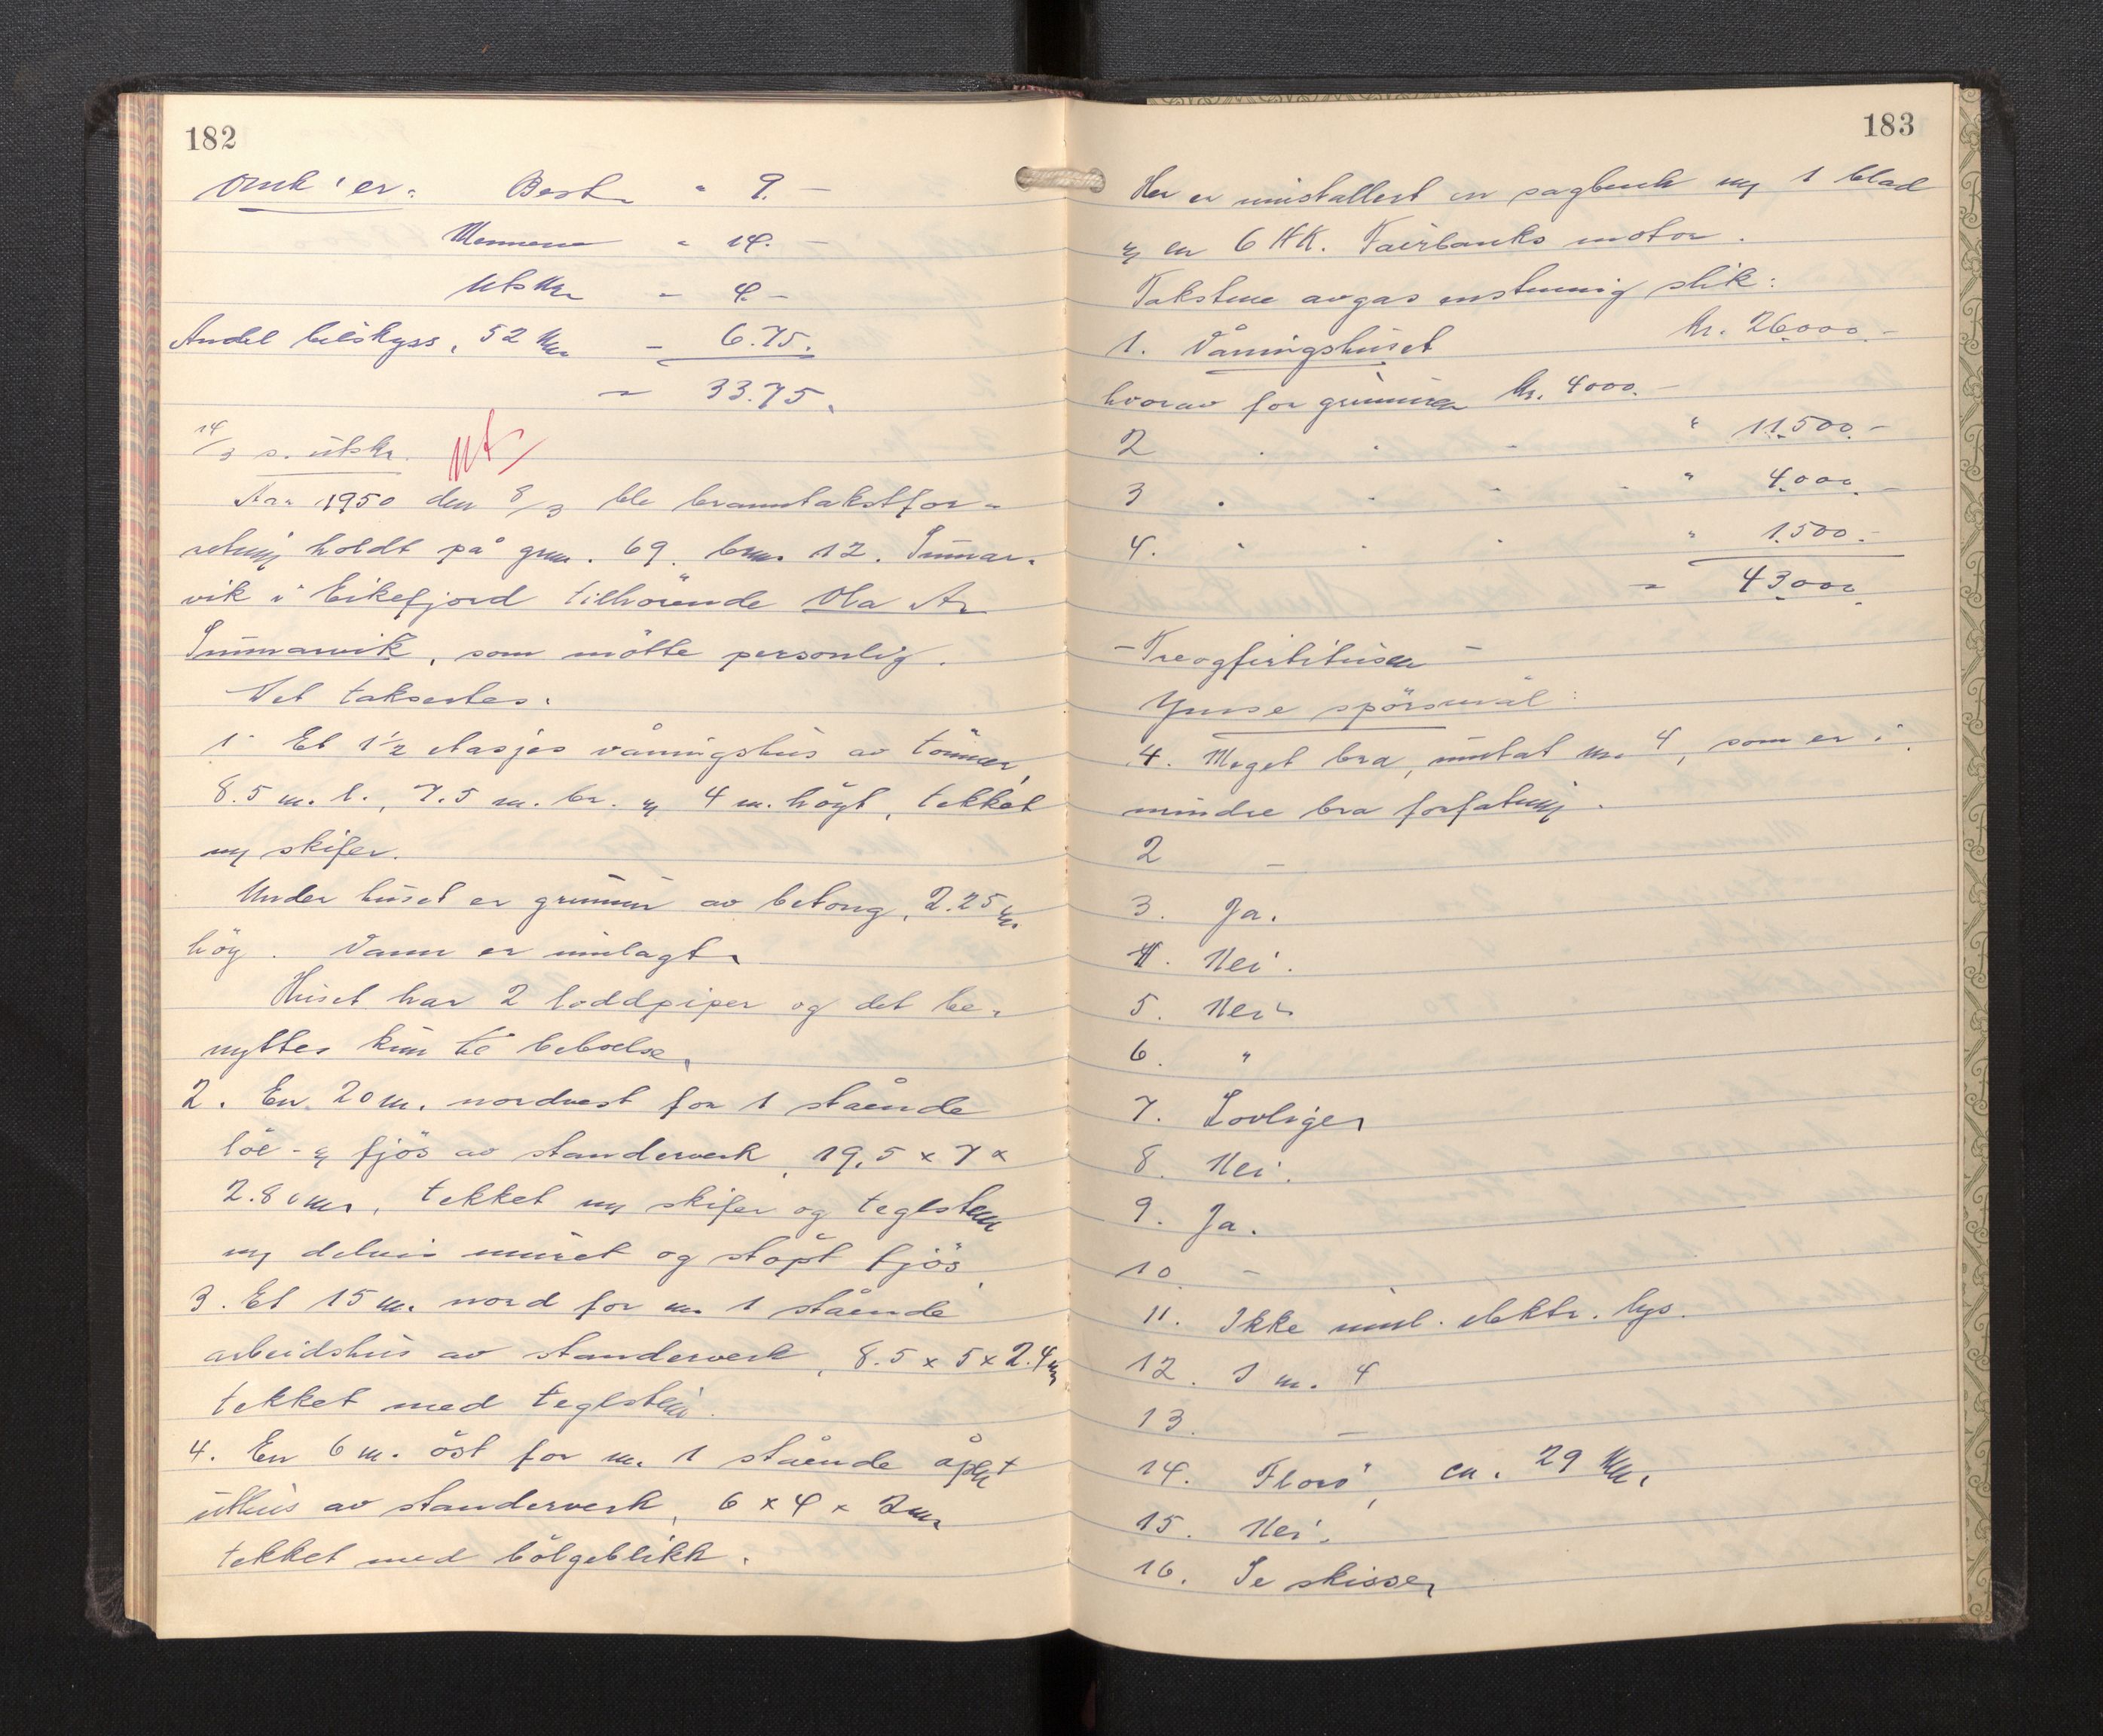 182
Omk'er: Best. " 9.-
Mennene " 14.-
Utskr. - 4.-
Andel bilskyss, 52 km - 6.75.
= 33.75.
14/3 s. utskr.
Aar 1950 den 8/3 ble branntakstfor-
retning holdt på gnr. 69. bnr. 12. Indrar-
vik i Eikefjord tilhörende Ola A.
som mötte personlig.
Det taksertes:
1. Et 1½ etasjes våningshus av tömmer,
8.5 m. l., 7.5 m. br. og 4 m. höyt, tekket
m/ skifer.
Under huset er grunmur av betong, 2.25 m
höy. Vann er innlagt.
Huset har 2 loddpiper og det be-
nyttes kun til beboelse.
2. En 20 m. nordvest for 1 stående
löe- og fjös av standerverk, 19,5 x 7 x
2.80 m, tekket m/ skifer og teglsten
m/ delvis muret og stöpt fjös.
3. Et 15 m. nord for nr. 1 stående
arbeidshus av standerverk, 8.5 x 5 x 2.4 m
tekket med teglstein.
4. En 6 m. öst for nr. 1 stående åpent
uthus av standerverk, 6 x 4 x 2 m.
tekket med bölgeblikk.
183
Her er innstallert en sagbenk m/ 1 blad
og en 6 HK. Fairbanks motor.
Takstene avgas enstemmig slik:
1. Våningshuset kr. 26000.-
hvorav for grunmuren kr. 4000.-
2 " 11.500.-
3 " 4.000.-
4. " 1.500.-
= 43.000
- Treogfirtitusen -
Ymse spörsmål:
1. Meget bra, untat nr. 4, som er i
mindre bra forfatning.
2 -
3. Ja.
4. Nei.
5. Nei.
6. "
7. Lovlige.
8. Nei.
9. Ja.
10. -
11. Ikke innl. elektr. lys.
12. I nr. 4
13. -
14. Florö, ca. 29 km.
15. Nei.
16. Se skisse.